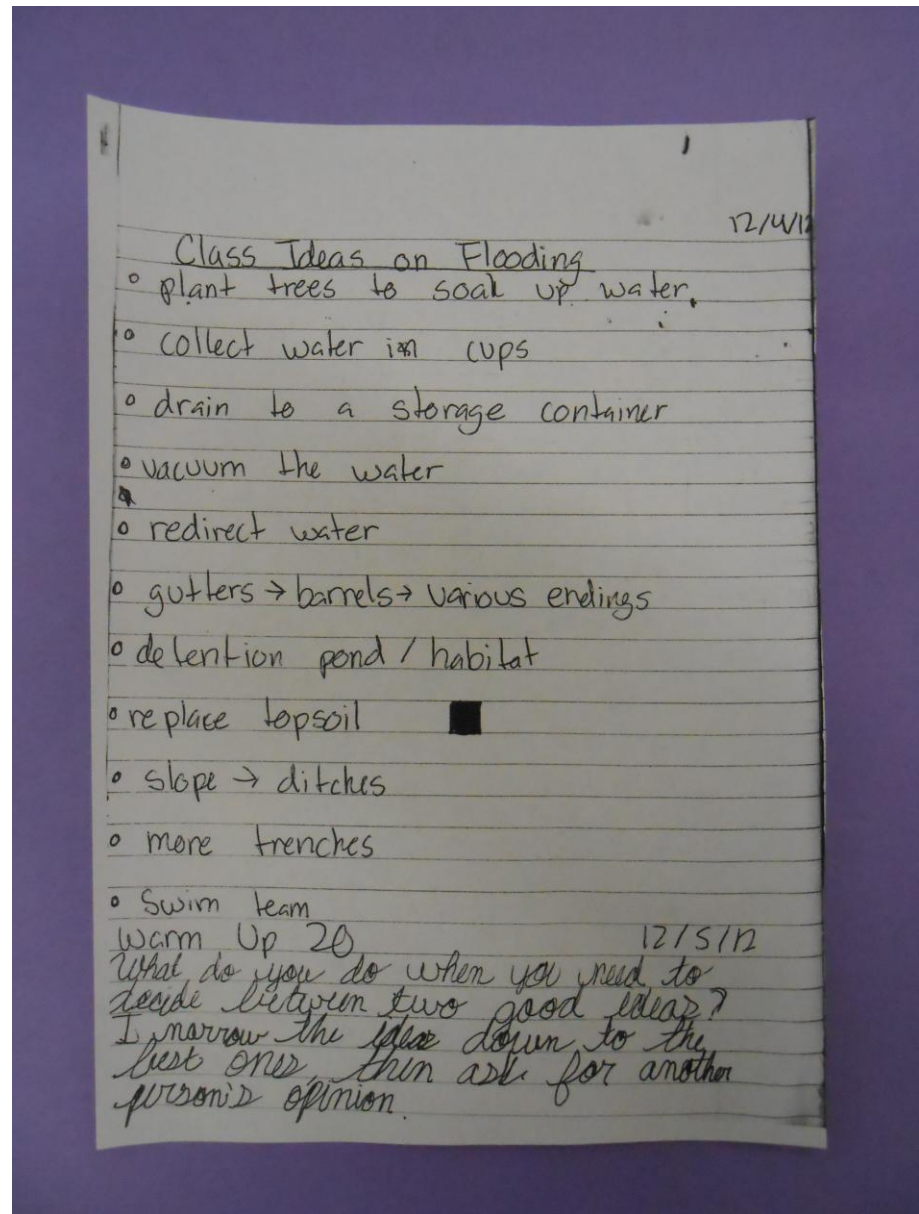 12/4/12
Class Ideas on Flooding
° plant trees to soak up water.
° collect water in cups
° drain to a storage container
° vacuum the water
° redirect water
° gutters → barrels → various endings
° detention pond / habitat
° replace topsoil
° slope → ditches
° more trenches
° Swim team
Warm Up 20 12/5/12
What do you do when you need to
decide between two good ideas?
I narrow the ideas down to the
best ones, then ask for another
person's opinion.